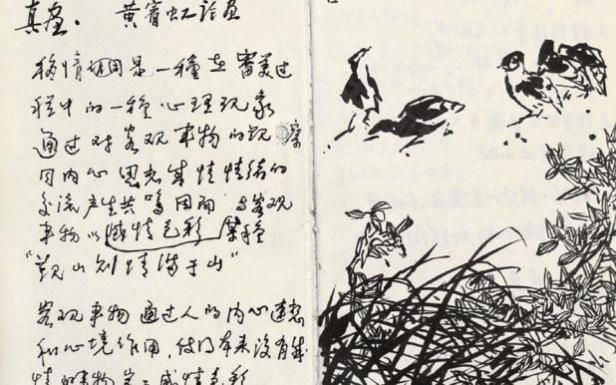 真画。 黄賓虹論画
移情作用是一種在審美过
程中的一種心理现象
通过对客观事物的观察
同内心思想感情情绪的
交流产生共鳴因而 与客观
事物以感情色彩 某種
"觀山则情满于山"
客观事物通过人的内心连想
和心境作用，使门本来没有感
情的事物赏之感情色彩